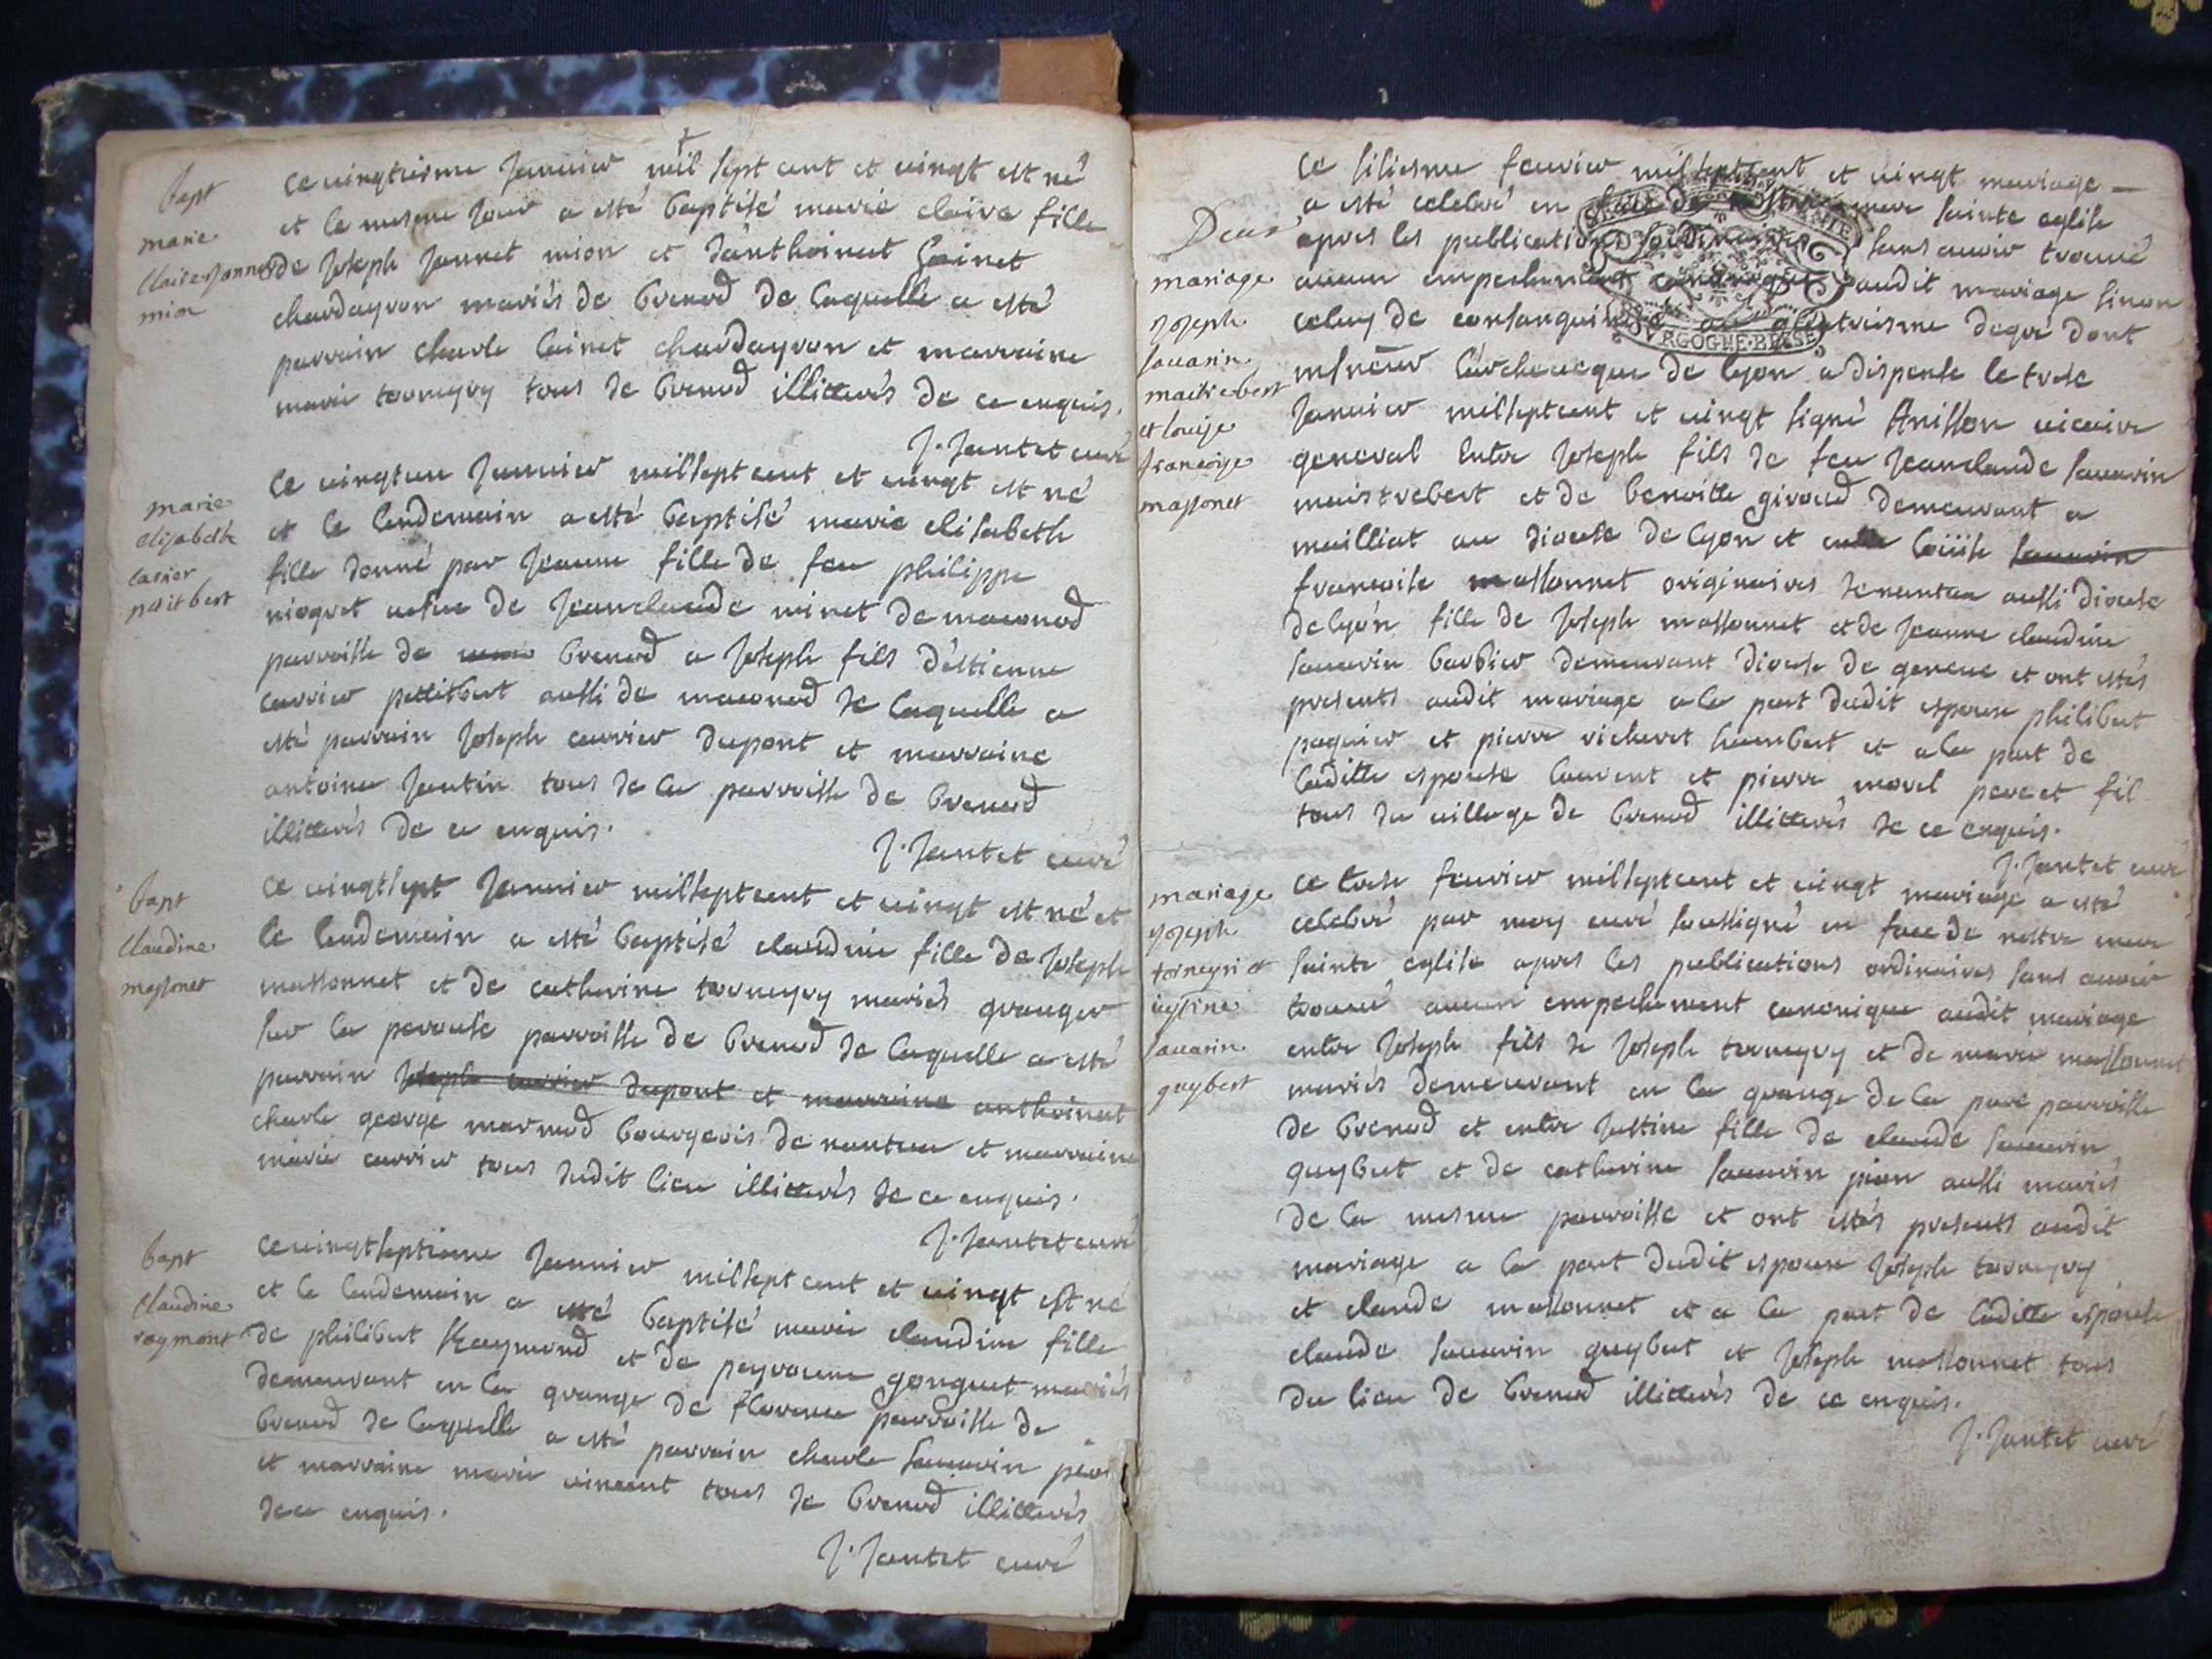 bapt
marie
claire Jannet
mion
ce vingtiesme Janvier mil sept cent et vingt est né
et le mesme jour a esté baptisé marie claire fille
de Joseph Jannet mion et d'anthoinett Cainet
chardayron mariés de brenod de laquelle a esté
parrain charle Cainet chardayron et marraine
marie torneyry tous de brenod illitterés de ce enquis.
J. Jantet curé
marie
elisabeth
carier
petitbert
ce vingtun Janvier millsept cent et vingt est né
et le lendemain a esté baptisé marie elisabeth
fille donné par Jeanne fille de feu philippe
niogret vefue de Jeanclaude minet de maconod
parroisse de brenod a Joseph fils d'estienne
carrier petitbert aussi de maconod de laquelle a
esté parrain Joseph carrier dupont et marraine
antoina Jantin tous de la parroisse de brenod
illitterés de ce enquis.
J. Jantet curé
bapt
claudine
massonet
ce vingtsept Janvier millsept cent et vingt est né et
le lendemain a esté baptisé claudine fille de Joseph
massonnet et de catherine torneyry mariés granger
sur la perouse parroisse de brenod de laquelle a esté
parrain Joseph carrier dupont et marraine anthoinett
charle george marmod bourgeois de nantua et marraine
marie carrier tous dudit lieu illitterés de ce enquis.
J. Jantet curé
bapt
claudine
raymont
ce vingtseptieme Janvier millsept cent et vingt est né
et le lendemain a esté baptisé marie claudine fille
de philibert Raymond et de peyronne gonguet mariés
demeurant en la grange de florence parroisse de
brenod de laquelle a esté parrain charle savarin pion
et marraine marie vincent tous de brenod illitterés
de ce enquis.
J. Jantet curé
Deux
mariage
joseph
savarin
maitrebert
et louise
francoise
massonet
ce sisiesme fevrier millseptcent et vingt mariage
a esté celebré en face de nostre mere sainte eglise
apres les publications ordinaires sans avoir trouvé
aucun empechement canonique audit mariage sinon
celuy de consanguinité au quatriesme degré dont
l'archevecque de lyon a dispensé le trese
Janvier millseptcent et vingt signé Anisson vicaire
general entre Joseph fils de feu Jeanclaude savarin
maistrebert et de benoitte giroud demeurant a
mailliat au diocese de lyon et loüise savarin
francoise massonnet originaires de nantua aussi diocese
de lyon fille de Joseph massonnet et de Jeanne claudine
savarin barbier demeurant diocese de geneve et ont estés
presents audit mariage a la part dudit espoux philibert
paquier et pierre richeret humbert et a la part de
laditte espouse laurent et pierre morel pere et fil
tous du village de brenod illitterés de ce enquis.
J. Jantet curé
mariage
joseph
torneyri et
justine
savarin
guybert
ce trese fevrier millseptcent et vingt mariage a esté
celebré par moy curé soussigné en face de nostre mere
sainte eglise apres les publications ordinaires sans avoir
trouvé aucun empechement canonique audit mariage
entre Joseph fils de Joseph torneyry et de marie massonnet
mariés demeurant en la grange de la pare parroisse
de brenod et entre Justine fille de claude savarin
guybert et de catherine savarin pion aussi mariés
de la mesme parroisse et ont estés presents audit
mariage a la part dudit espoux Joseph torneyry
et claude massonnet et a la part de laditte espouse
claude savarin guybert et Joseph massonnet tous
du lieu de brenod illitterés de ce enquis.
J. Jantet curé